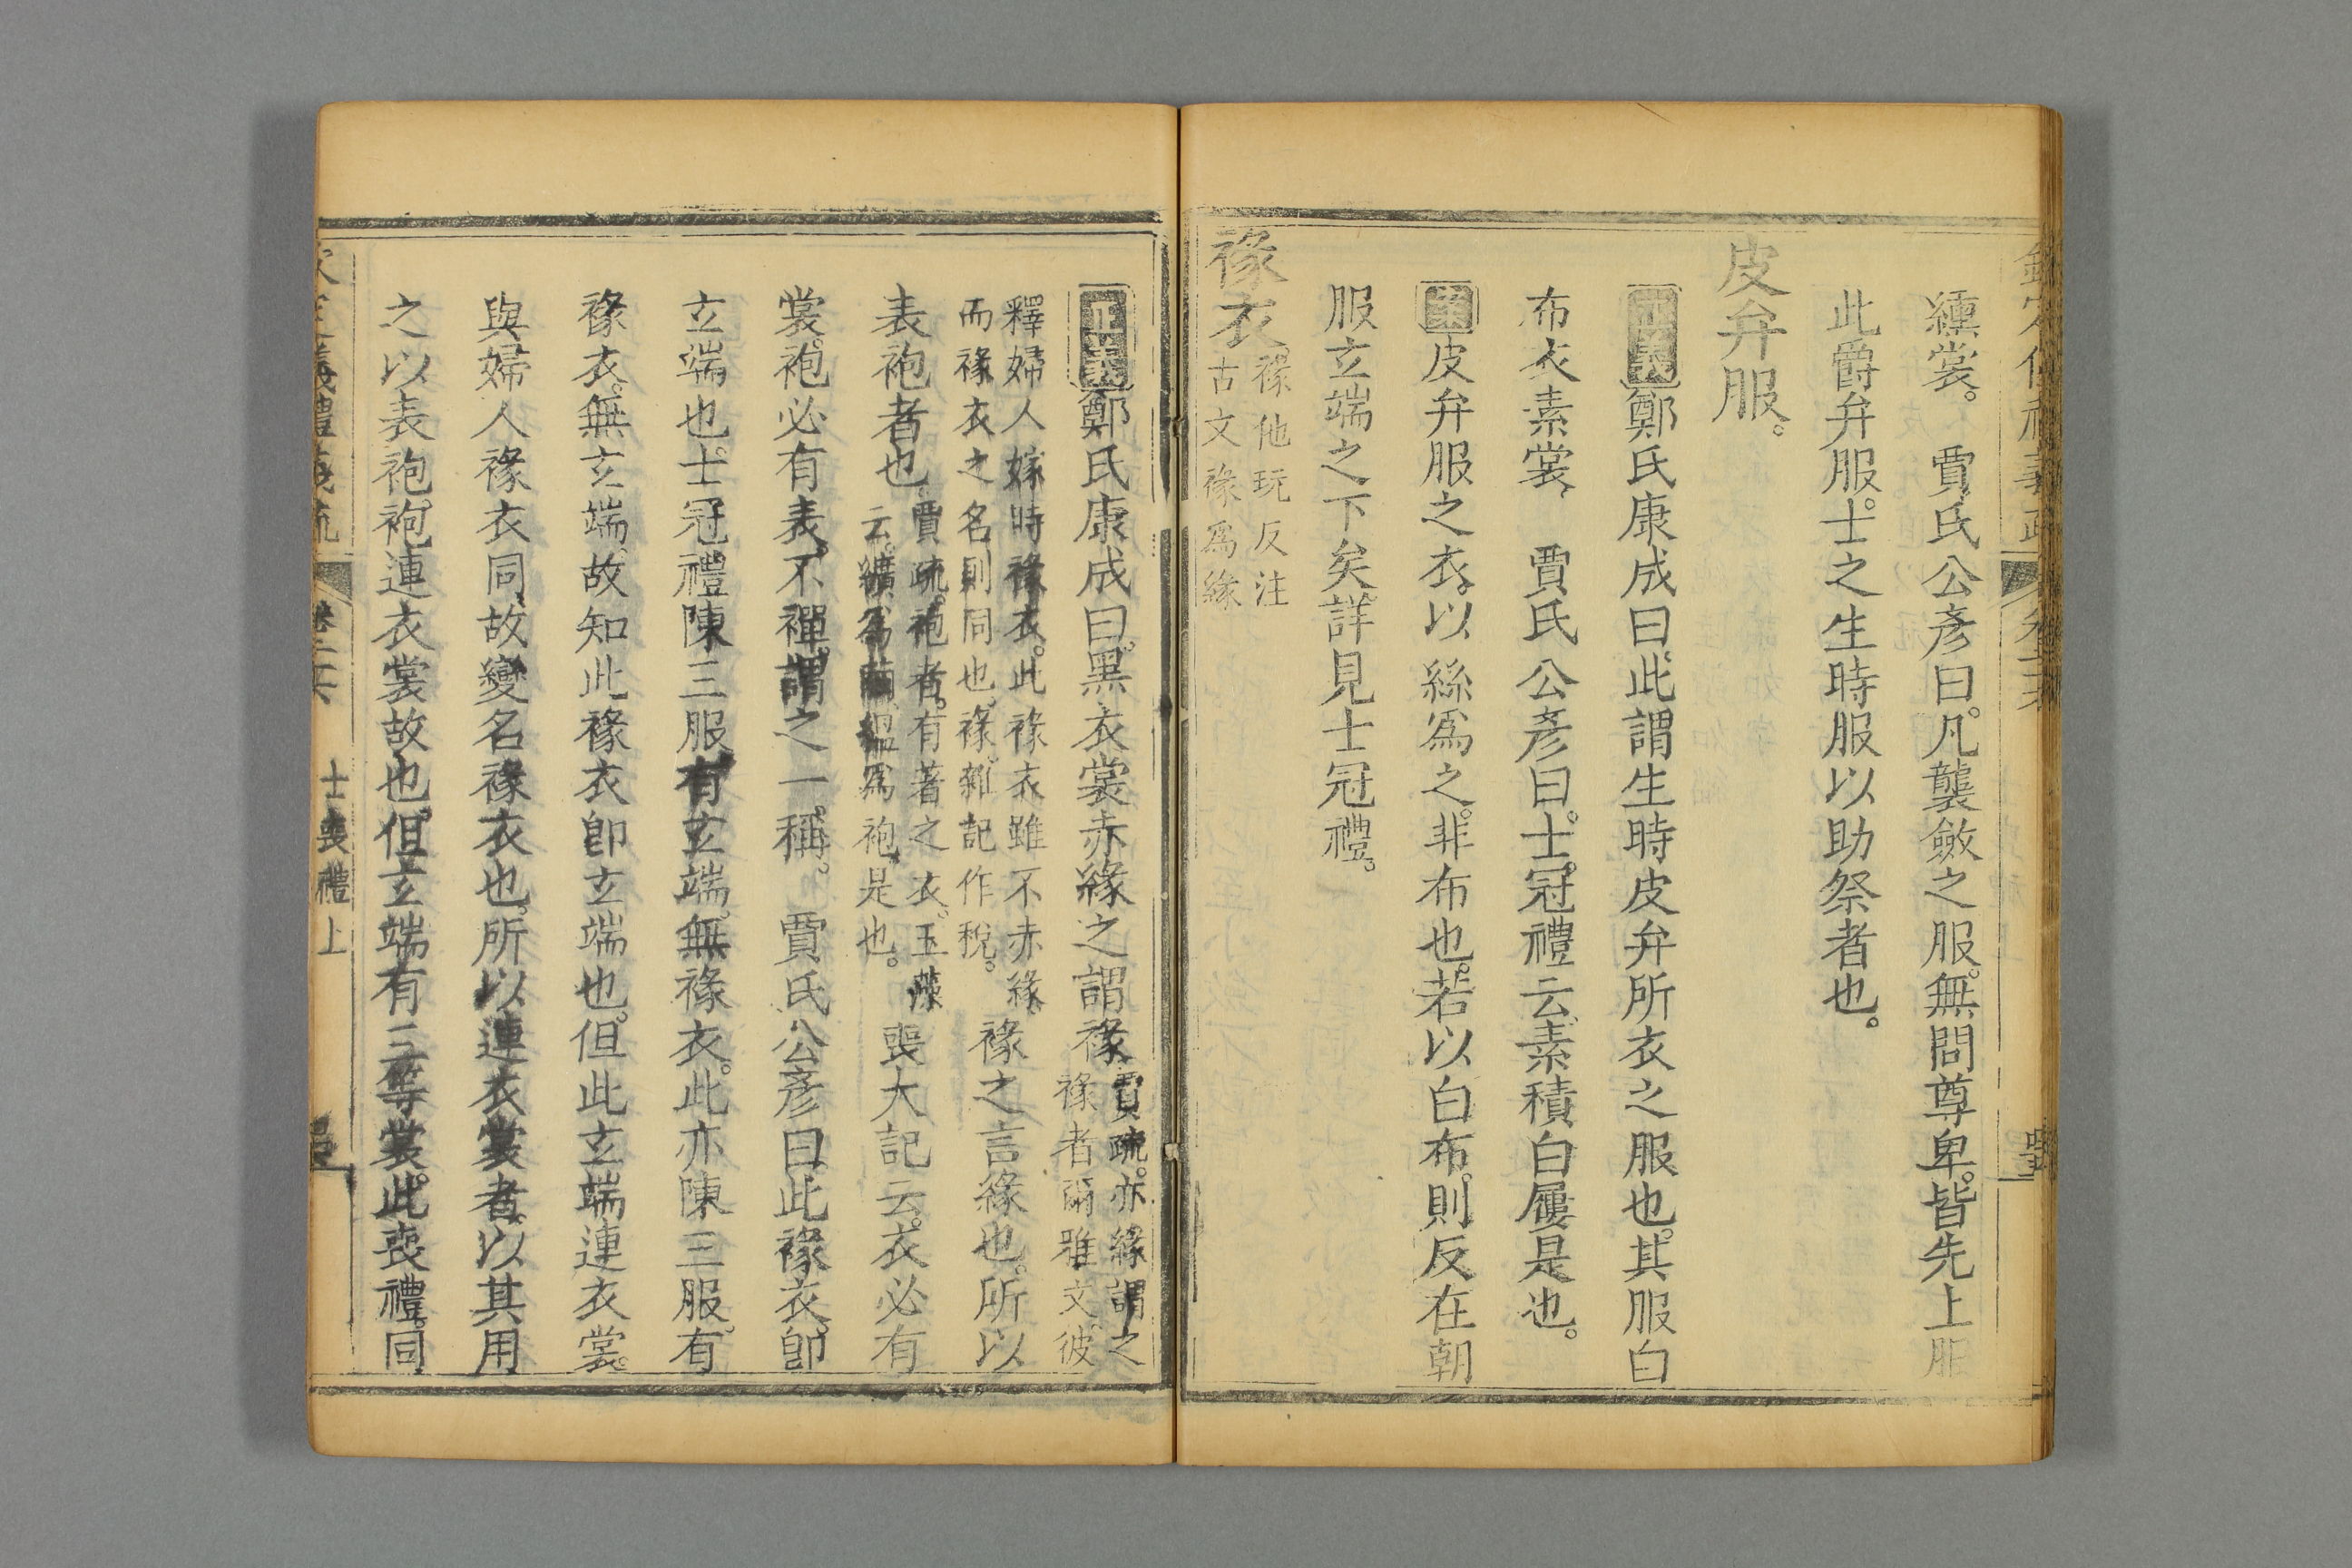 纁裳。　賈氏公彥曰。凡襲斂之服。無問尊卑。皆先上服
此爵弁服。士之生時服以助祭者也。
皮弁服。
正義鄭氏康成曰。此謂生時皮弁所衣之服也。其服白
布衣素裳、　賈氏公彥曰。士冠禮云、素積白屨是也。
案皮弁服之衣。以絲爲之。非布也。若以白布。則反在朝
服玄端之下矣。詳見士冠禮。
褖衣褖他玩反注
古文褖爲緣
正義鄭氏康成曰。黑衣裳赤緣之謂褖賈疏。亦緣謂之
褖者爾雅文。彼
釋婦人嫁時褖衣。此褖衣雖不赤緣。
而褖衣之名則同也。褖。雜記作稅。
褖之言緣也。所以
表袍者也賈疏。袍者。有著之衣、玉藻
云。纊爲繭縕爲袍、是也。
喪大記云。衣必有
裳。袍必有表。不襌。謂之一稱。　賈氏公彥曰、此褖衣。卽
玄端也。士冠禮陳三服有玄端。無褖衣。此亦陳三服。有
褖衣。無玄端。故知此褖衣卽玄端也。但此玄端連衣裳。
與婦人褖衣同。故變名褖衣也。所以連衣裳者。以其用
之以表袍。袍連衣裳故也。但玄端有三等裳。此喪禮。同
士喪禮上